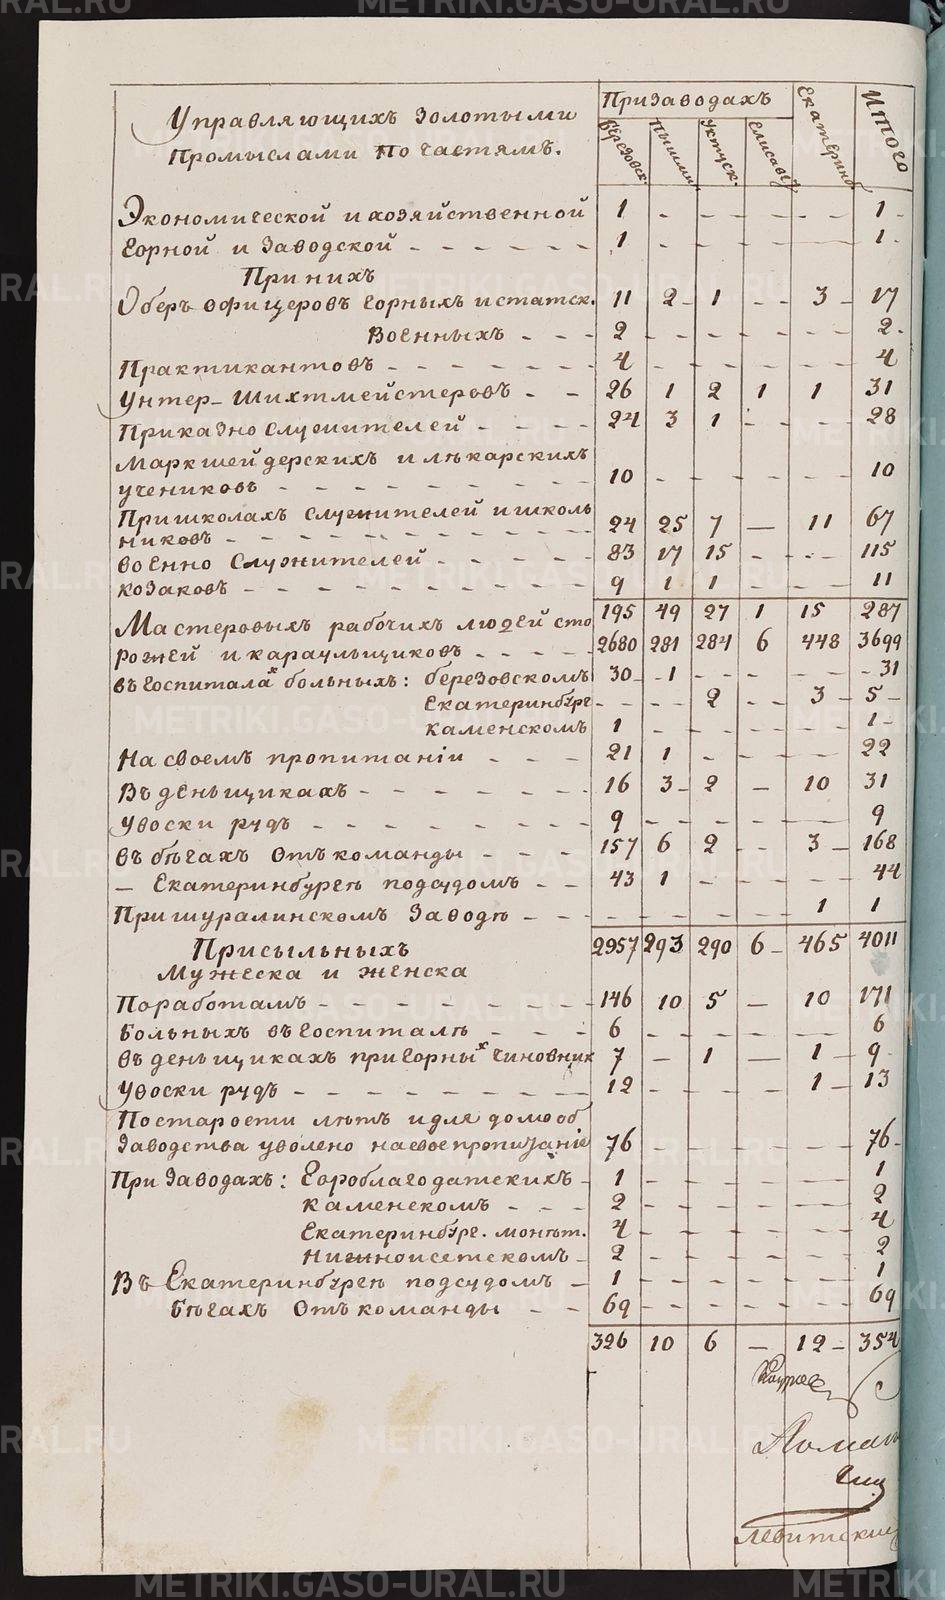 Управляющихъ Золотыми
Промыслами По частямъ.
При Заводахъ
Березовск.
Пышмин
Уктуск.
Елисавет
Екатеринб
Итого
Экономической и хозяйственной 1 - - - - 1 -
Горной и Заводской - - - - - - 1 - - - - 1 -
При нихъ
Оберъ офицеровъ Горныхъ и статск. 11 2 - 1 - - 3 - 17
Военныхъ - - - 2 - - - - 2 -
Практикантовъ - - - - - - 4 - - - - 4
Унтер-Шихтмейстеровъ - - 26 1 2 1 1 31
Приказно Служителей - - - - 24 3 1 - - 28
Маркшейдерскихъ и лѣкарскихъ
учениковъ - - - - - - - - 10 - - - - 10
При школахъ служителей и школь
никовъ - - - - - - - - - 24 25 7 — 11 67
Военно Служителей - - - - - 83 17 15 - - 115
Козаковъ - - - - - - - - - 9 1 1 - - 11
195 49 27 1 15 287
Мастеровыхъ рабочихъ людей сто
рожей и караульщиковъ - - - - 2680 281 284 6 448 3699
въ Госпиталахъ больныхъ: березовскомъ 30 - 1 - - - 31
Екатеринбург - - - 2 - - 3 - 5 -
Каменскомъ 1 - - - - 1 -
На своемъ пропитаніи - - - 21 1 - - - 22
Въ деньщикахъ - - - - - - - 16 3 - 2 — 10 31
Увоски рудъ - - - - - - - - 9 - - - - 9
Въ бѣгахъ Отъ команды - - - - 157 6 2 - - 3 - 168
— Екатеринбургѣ подсудомъ - - 43 1 - - - 44
При шуралинскомъ Заводѣ - - - - - - - 1 1
2957 293 290 6 - 465 4011
Присыльныхъ
Мужеска и женска
Поработамъ - - - - - - - - 146 10 5 — 10 171
Больныхъ въ Госпиталѣ - - - 6 - - - - 6
Въ деньщикахъ при Горныхъ чиновник 7 — 1 — 1 - 9 -
Увоски рудъ - - - - - - - - 12 - - - 1 - 13
По старости лѣтъ и для домооб
Заводства уволено на свое пропитаніе 76 - - - - 76 -
При Заводахъ: Гороблагодатскихъ - 1 - - - - 1
Каменскомъ - - - 2 - - - - 2
Екатеринбург. монетн. 4 - - - - 4
Нижноисетскомъ - 2 - - - - 2
Въ Екатеринбургѣ подсудомъ - 1 - - - - 1
Бѣгахъ Отъ команды - - 69 - - - - 69
326 10 6 — 12 - 354
Левитский
METRIKI.GASO-URAL.RU